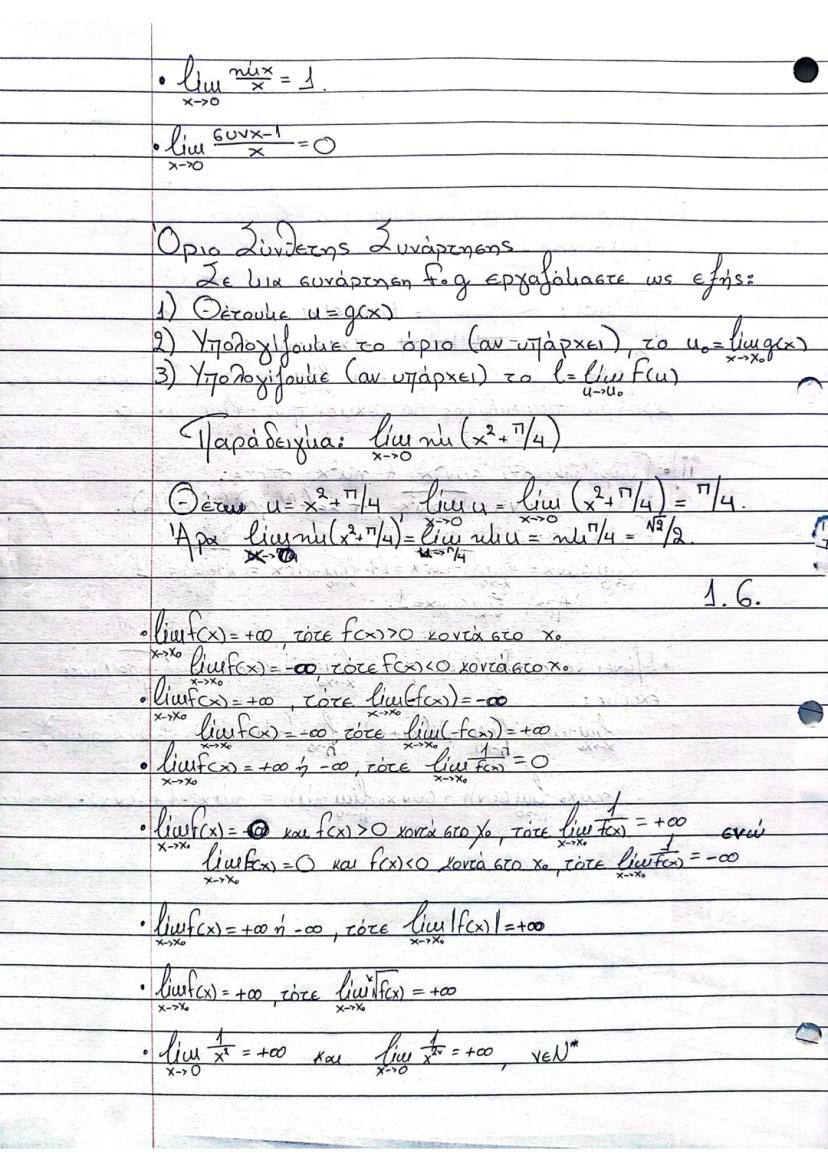 • lim x→0 ημx/x = 1.
• lim x→0 συνx-1/x = 0
Όριο Σύνθετης Συνάρτησης
Σε μια συνάρτηση f∘g εργαζόμαστε ως εξής:
1) Θέτουμε u = g(x)
2) Υπολογίζουμε το όριο (αν υπάρχει), το u₀ = lim x→x₀ g(x)
3) Υπολογίζουμε (αν υπάρχει) το l = lim u→u₀ f(u)
Παράδειγμα: lim x→0 ημ(x² + π/4)
Θέτω u = x² + π/4 lim x→0 u = lim x→0 (x² + π/4) = π/4.
Άρα lim ημ(x² + π/4) = lim u→π/4 ημu = ημπ/4 = √2/2.
1.6.
• lim x→x₀ f(x) = +∞, τότε f(x)>0 κοντά στο x₀
lim x→x₀ f(x) = -∞, τότε f(x)<0 κοντά στο x₀
• lim x→x₀ f(x) = +∞, τότε lim x→x₀ (-f(x)) = -∞
lim x→x₀ f(x) = -∞ τότε lim x→x₀ (-f(x)) = +∞
• lim x→x₀ f(x) = +∞ ή -∞, τότε lim x→x₀ 1/f(x) = 0
• lim x→x₀ f(x) = 0 και f(x)>0 κοντά στο x₀, τότε lim x→x₀ 1/f(x) = +∞ ενώ
lim x→x₀ f(x) = 0 και f(x)<0 κοντά στο x₀, τότε lim x→x₀ 1/f(x) = -∞
• lim x→x₀ f(x) = +∞ ή -∞, τότε lim x→x₀ |f(x)| = +∞
• lim x→x₀ f(x) = +∞, τότε lim x→x₀ ᵏ√f(x) = +∞
• lim x→0 1/x² = +∞ και lim x→0 1/x²ᵛ = +∞, ν∈N*